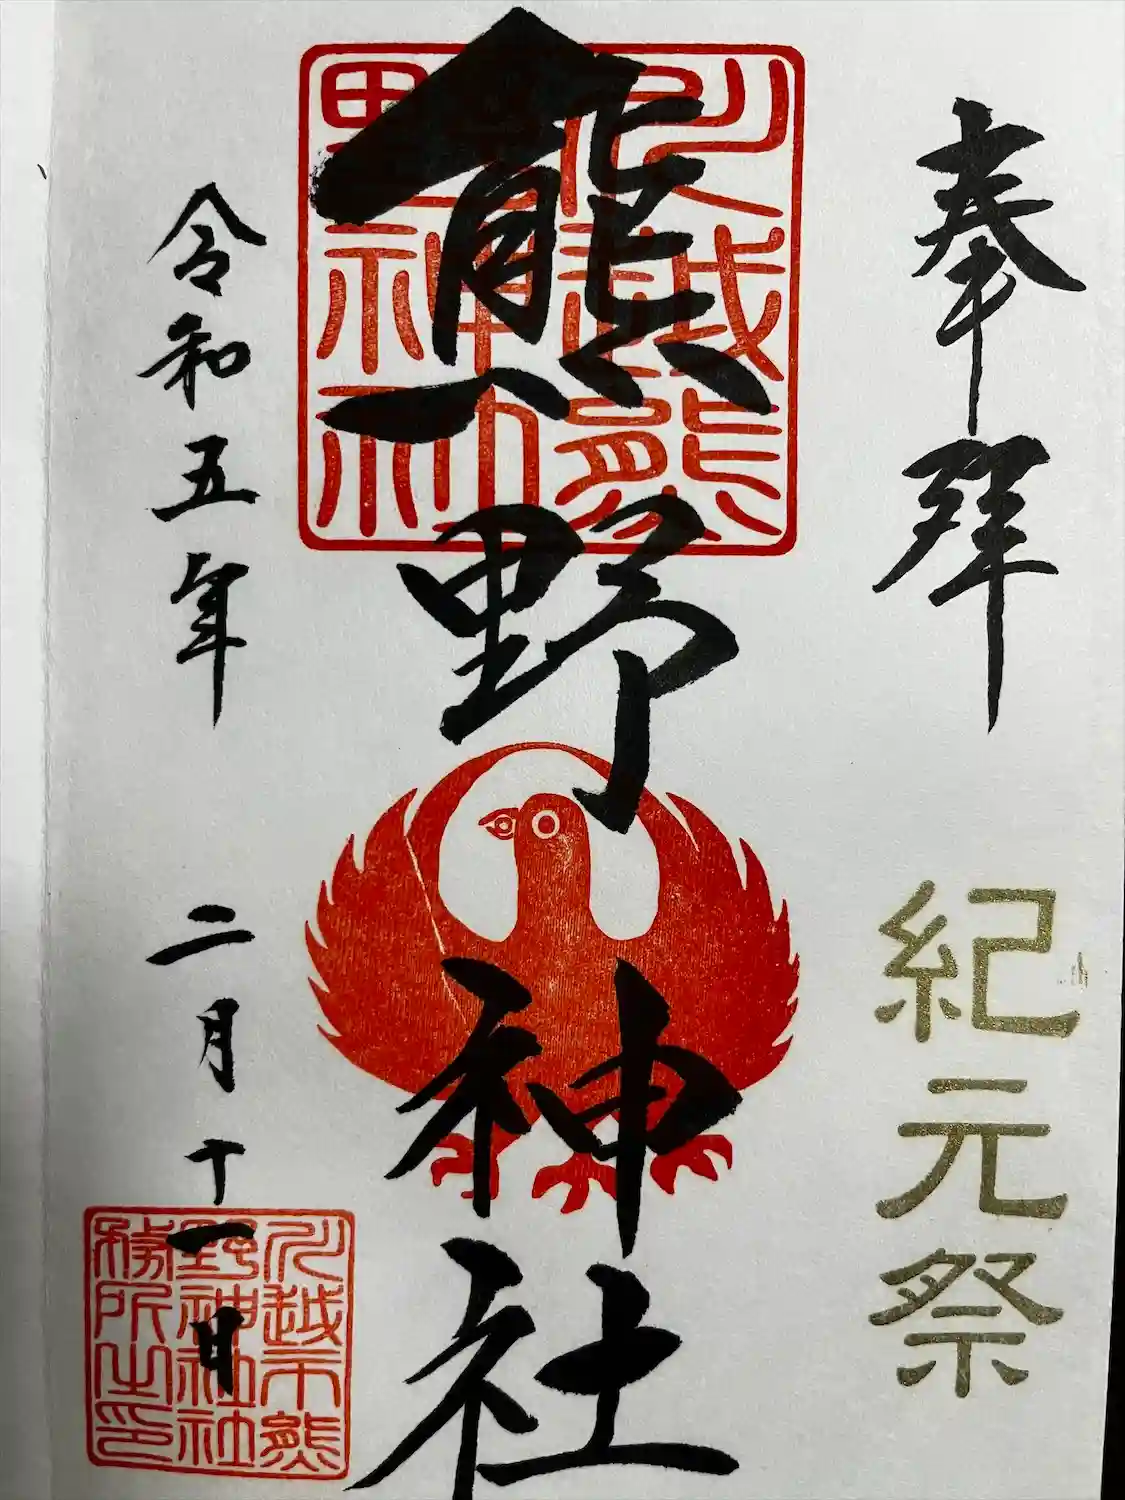 奉拝
紀元祭
川越熊野神社
熊野神社
令和五年 二月十一日
川越市熊野神社社務所之印